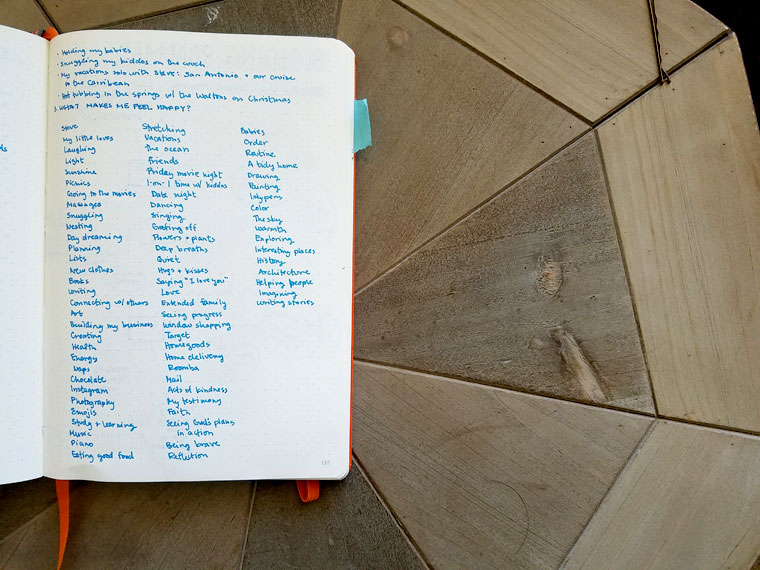 · Holding my babies
· Snuggling my kiddos on the couch
· My vacations solo with Steve: San Antonio + our cruise
to the Carribean
· Hot tubbing in the springs w/ the Waltons on Christmas
3. WHAT MAKES ME FEEL HAPPY?
Steve
My little loves
Laughing
Light
Sunshine
Picnics
Going to the movies
Massages
Snuggling
Nesting
Day dreaming
Planning
Lists
New clothes
Books
Writing
Connecting w/ others
Art
Building my business
Creating
Health
Energy
Naps
Chocolate
Instagram
Photography
Emojis
Study + learning
Music
Piano
Eating good food
Stretching
Vacations
The ocean
Friends
Friday movie night
1-on-1 time w/ kiddos
Date night
Dancing
Singing
Goofing off
Flowers + plants
Deep breaths
Quiet
Hugs + kisses
Saying "I love you"
Love
Extended family
Seeing progress
Window shopping
Target
Homegoods
Home delivery
Roomba
Mail
Acts of kindness
My testimony
Faith
Seeing God's plans
in action
Being brave
Reflection
Babies
Order
Routine
A tidy home
Drawing
Painting
Inky pens
Color
The sky
Warmth
Exploring
Interesting places
History
Architecture
Helping people
Imagining
Writing stories